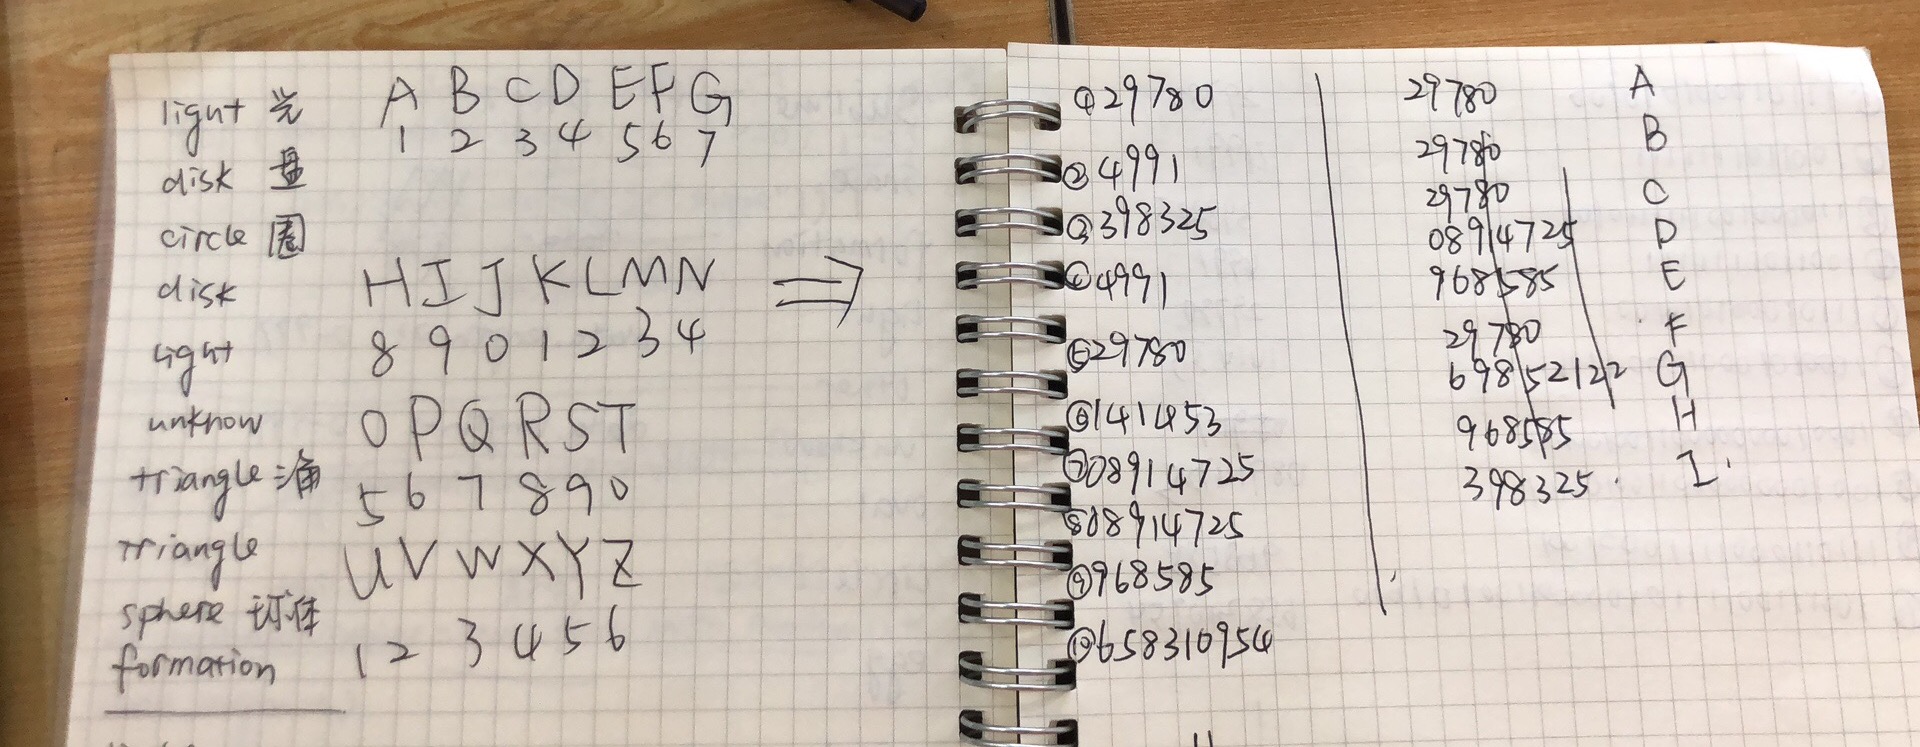 light 光
disk 盘
circle 圈
disk
light
unknow
triangle 三角
triangle
sphere 球体
formation
A B C D E F G
1 2 3 4 5 6 7
H I J K L M N
8 9 0 1 2 3 4
O P Q R S T
5 6 7 8 9 0
U V W X Y Z
1 2 3 4 5 6
⇒
①29780
②4991
③398325
④4991
⑤29780
⑥141453
⑦08914725
⑧08914725
⑨968585
⑩658310954
29780 A
29780 B
29780 C
08914725 D
968585 E
29780 F
69852122 G
968585 H
398325 I